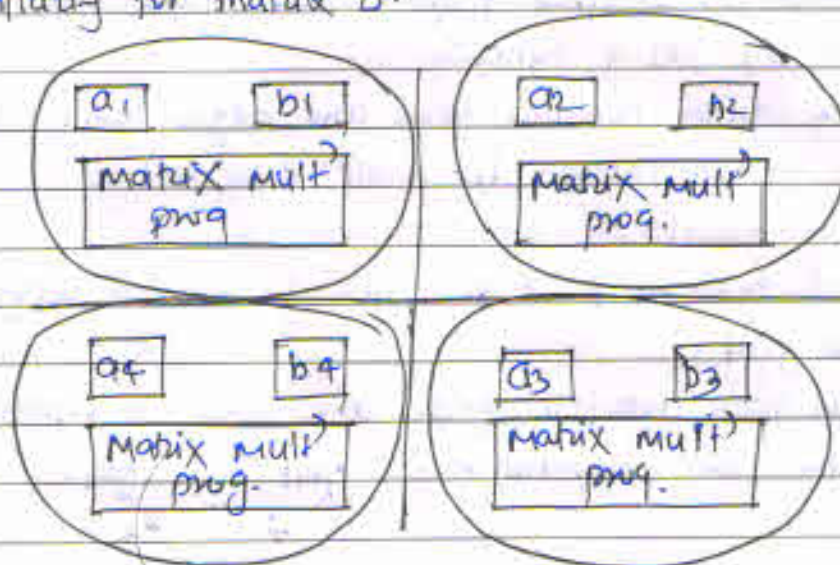 for matrix B.
a1 b1
a2 b2
matrix mult)
prog
matrix mult)
prog.
a4 b4
a3 b3
Matrix mult)
prog.
matrix mult)
prog.